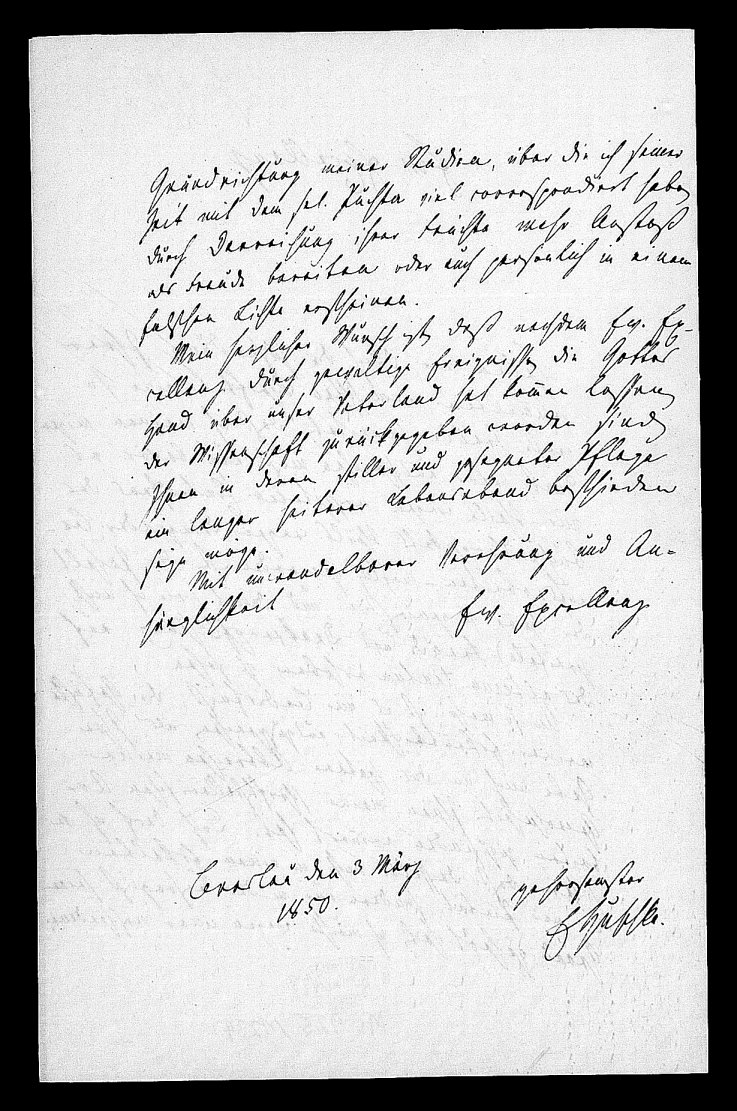 Grundrichtung meiner Studien, über die ich seiner
Zeit mit dem sel. Puchta viel correspondirt habe,
durch Darreichung ihrer Früchte mehr Anstoß
als Freude bereiten oder auch persönlich in einem
falschen Lichte erscheinen.
Mein herzlicher Wunsch ist, daß nachdem Ew. Ex-
cellenz durch gewaltige Ereignisse, die Gottes
Hand über unser Vaterland hat kommen lassen,
der Wissenschaft zurückgegeben worden sind,
Ihnen in deren stiller und gesegneter Pflege
ein langer heiterer Lebensabend beschieden
seyn möge.
Mit unwandelbarer Verehrung und An-
hänglichkeit
Ew. Excellenz
Breslau den 3 März
1850.
gehorsamster
Huschke.